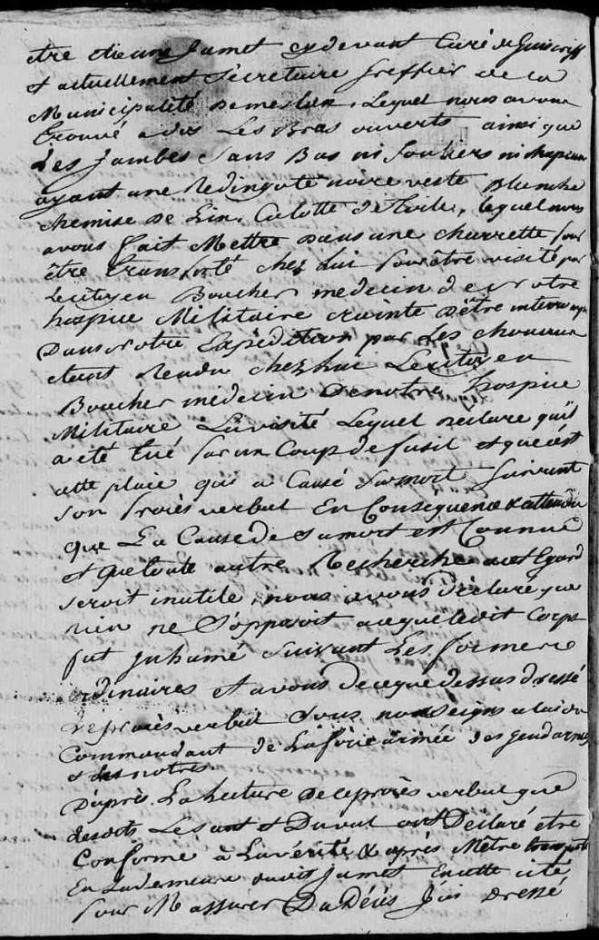 etre etienne Jamet cydevant Curé de Guiscriff
et actuellement Sécretaire Greffier de la
Municipalité de meslan, Lequel nous avons
trouvé a dos Les Bras ouverts ainsi que
Les Jambes Sans Bas ni Souliers ni chapeau
ayant une Redingote noire veste blanche
chemise de Lin, Culotte de toile, lequel nous
avons fait Mettre dans une charrette pour
être transporté chez Lui pour être visité par
Le citoyen Boucher médecin de notre
hospice Militaire crainte d'être interrompu
Dans Notre Expédition par Les chouans
étant Rendu chez lui Le citoyen
Boucher médecin de notre hospice
Militaire La visité Lequel déclare qu'il
a été tué par un Coup de fusil et que c'est
cette plaie qui a Causé sa mort Suivant
son Procès verbal En Conséquence & attendu
que La Cause de sa mort est Connue
et que toute autre Recherche a cet Egard
seroit inutile, nous avons déclaré que
rien ne S'opposoit a ce que ledit Corps
fut Inhumé Suivant Les formes
ordinaires et avons de ce que dessus dressé
ce procès verbal Sous nos Seings celui du
Commandant de La force armée des gendarmes
et des notres
D'après La Lecture de ce procès verbal que
desdts Lesant et Duval ont Déclaré etre
Conforme à La vérité & après Mètre transporté
En La demeure dudit Jamet En cette cité
pour M'assurer Du Décès J'ai Dressé